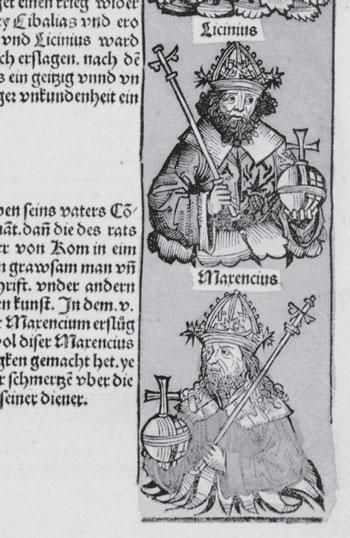 ger einen krieg wider
ey Cibalias vnd ero
vnd Licinius ward
ch erslagen. nach dẽ
s ein geitzig vnnd vn
ger vnkundenheit ein
Licinius
ben seins vaters Cõ-
dañ die des rats
er von Rom in eim
n grawsam man vñ
hrift. vnder andern
en kunst. In dem .v.
r Maxencium erslüg
vol diser Maxencius
gken gemacht het. ye
r schmertzẽ vber die
seiner diener.
Maxencius